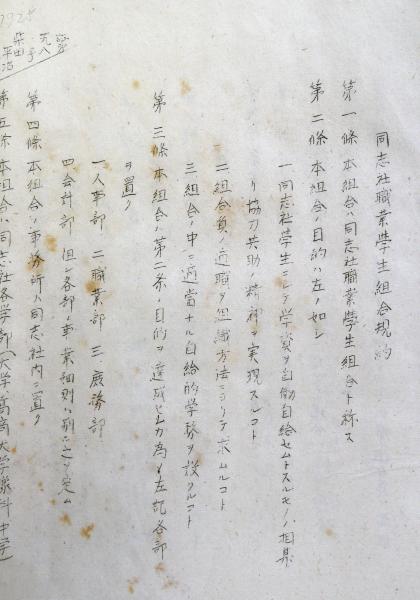 同志社職業學生組合規約
第一條 本組合ハ同志社職業學生組合ト称ス
第二條 本組合ノ目的ハ左ノ如シ
一 同志社學生ニシテ学資ヲ自働自給セムトスルモノノ相集
リ協力共助ノ精神ヲ実現スルコト
二 組合員ノ適職ヲ組織方法ニヨリテ求ムルコト
三 組合ノ中ニ適當ナル自給的学務ヲ設クルコト
第三條 本組合ハ第二条ノ目的ヲ達成セムカ為メ左記各部
ヲ置ク
一人事部 二職業部 三庶務部
四会計部 但シ各部ノ事業細則ハ別ニ之ヲ定ム
第四條 本組合ノ事務所ハ同志社内ニ置ク
第五條 本組合ハ同志社各学部(大学高商大学豫科中学